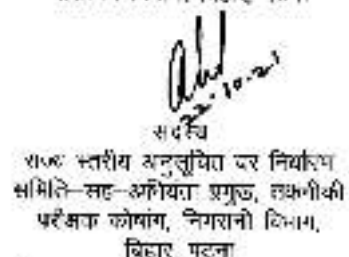 22.10.21
सदस्य
राज्य स्तरीय अनुसूचित दर निर्धारण
समिति–सह–अभियंता प्रमुख, तकनीकी
परीक्षक कोषांग, निगरानी विभाग,
बिहार, पटना